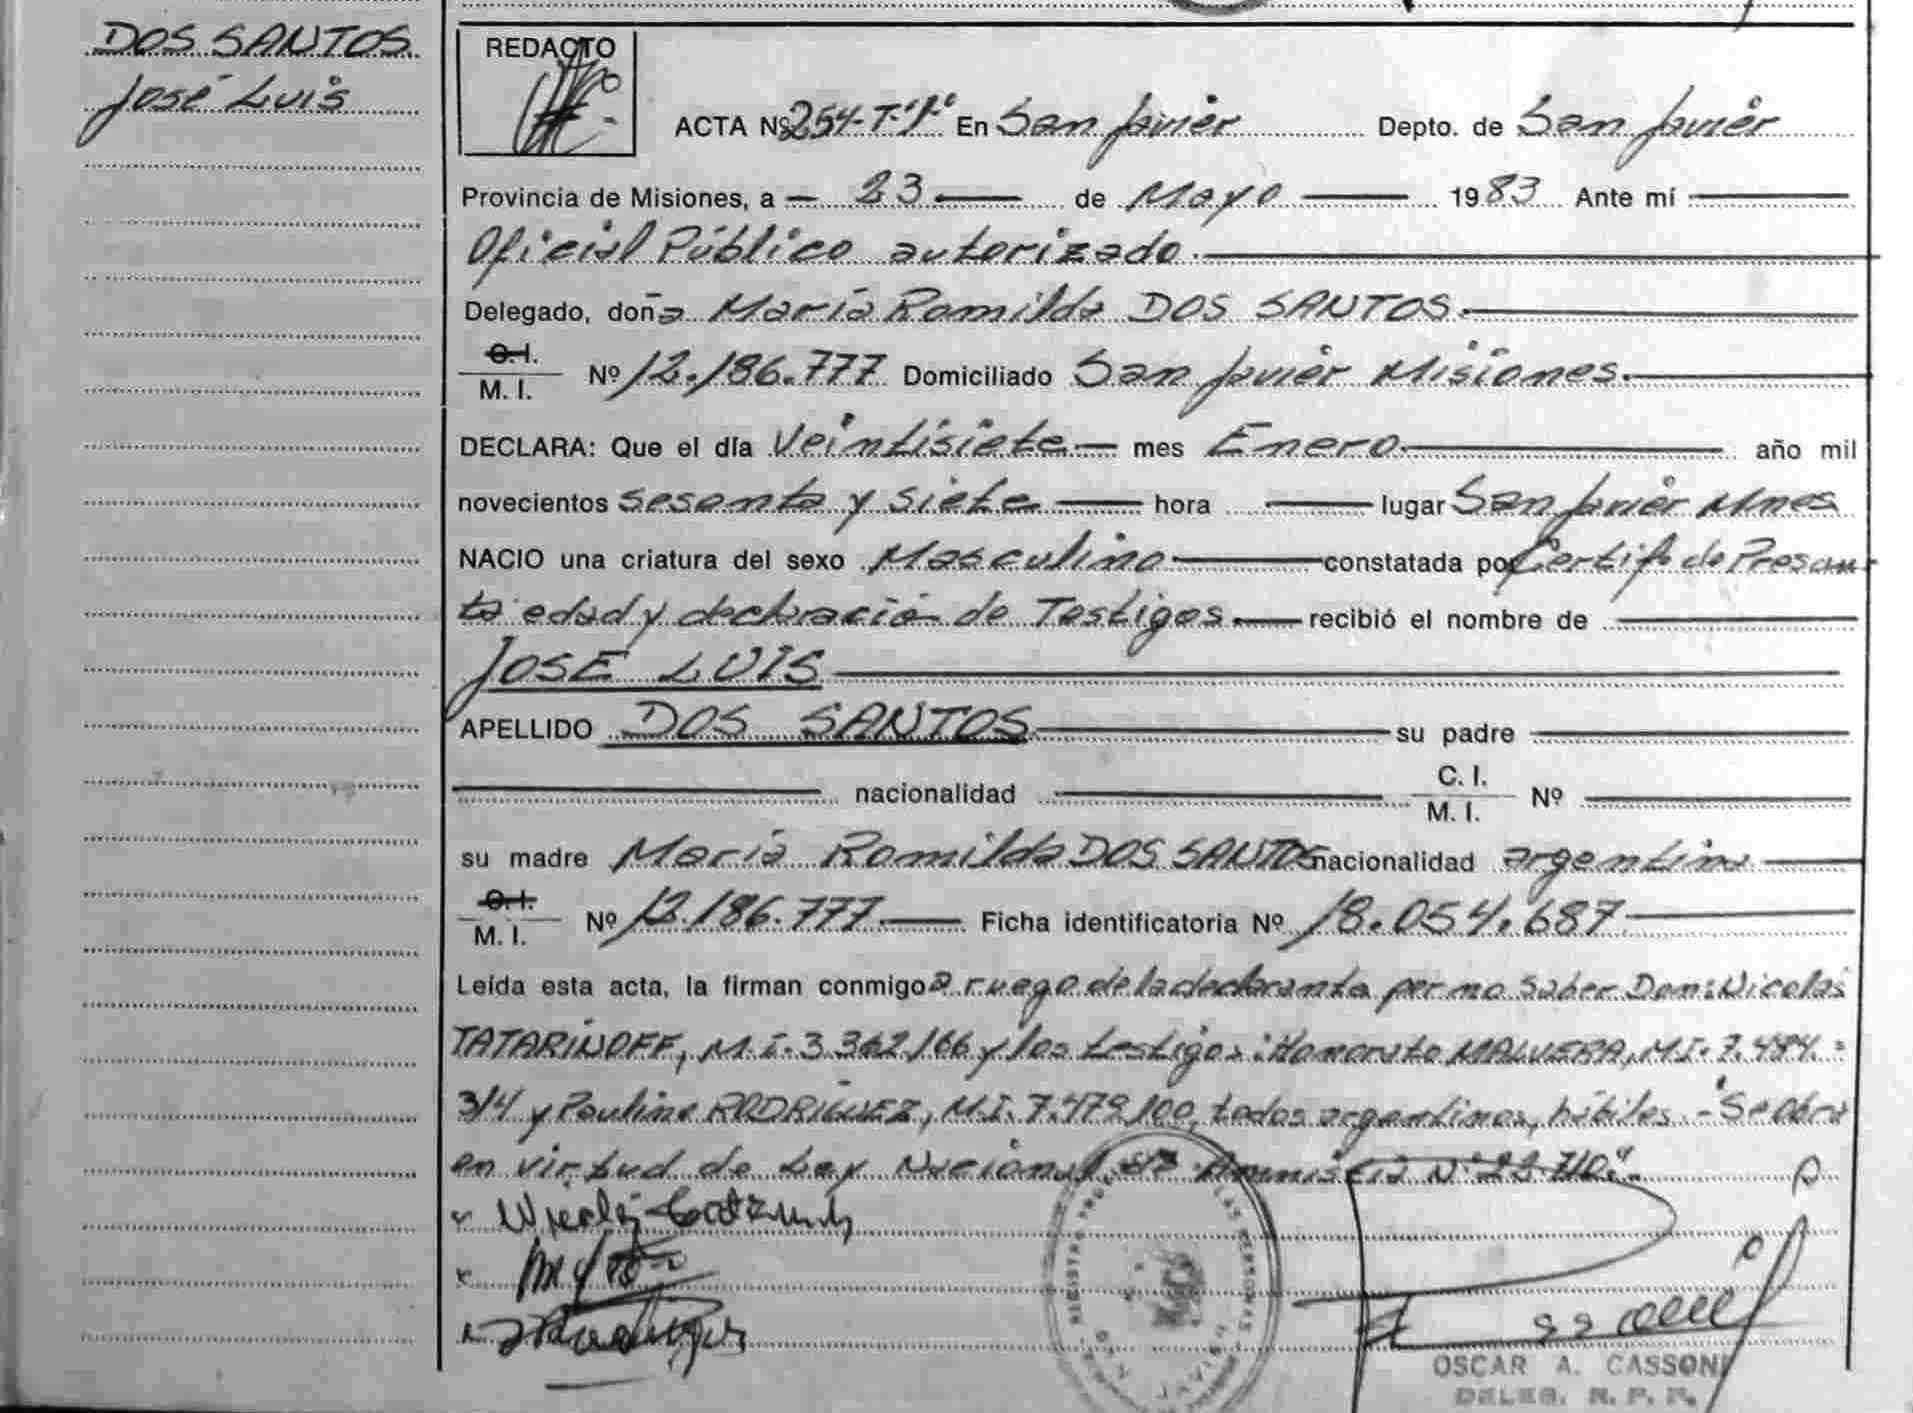 DOS SANTOS
José Luis
REDACTO
ACTA Nº 254-T·1º En San Javier Depto. de San Javier
Provincia de Misiones, a 23 de Mayo 1983 Ante mí
Oficial Público autorizado.
Delegado, doña María Romilda DOS SANTOS.
C.I.
M. I. Nº 12.186.777 Domiciliado San Javier Misiones.
DECLARA: Que el día Veintisiete mes Enero año mil
novecientos sesenta y siete hora lugar San Javier Mnes
NACIO una criatura del sexo Masculino constatada por Certif. de Presun-
ta edad y declaració de Testigos. recibió el nombre de
JOSE LUIS
APELLIDO DOS SANTOS su padre
nacionalidad C. I.
M. I. Nº
su madre María Romilda DOS SANTOS nacionalidad argentina
C.I.
M. I. Nº 12.186.777 Ficha identificatoria Nº 18.054.687
Leída esta acta, la firman conmigo a ruego de la declarante por no saber Don: Nicolas
TATARINOFF, M.I. 3.362.166 y los testigos: Honorato MALVERA, M.I. 7.484.=
314 y Paulino RODRIGUEZ, M.I. 7.479.100, todos argentinos, hábiles.- "Se obra
en virtud de Ley Nacional de Amnistía Nº 22.710".
OSCAR A. CASSONI
DELEG. R. P. P.